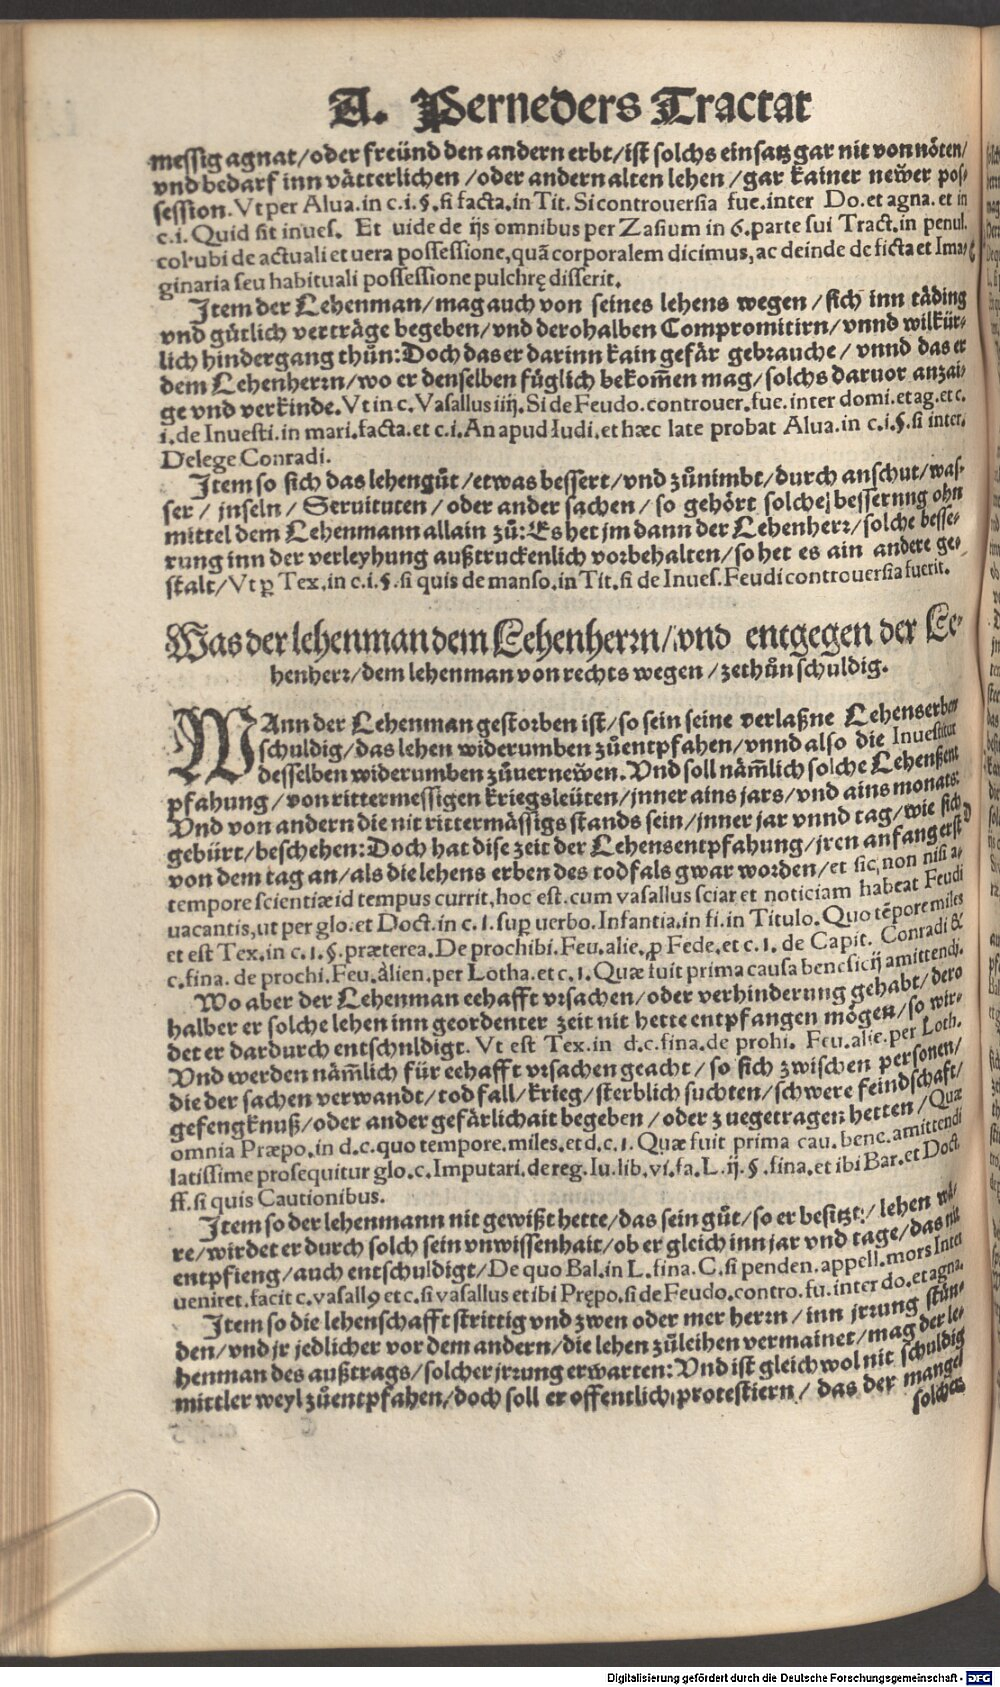 A. Perneders Tractat
messig agnat/oder freünd den andern erbt/ist solchs einsatz gar nit von nöten/
vnd bedarf inn vätterlichen/oder andern alten lehen/gar kainer newer pos-
session. Vt per Alua. in c. i. §. si facta. in Tit. Si controuersia fue. inter Do. et agna. et in
c. i. Quid sit inues. Et uide de ijs omnibus per Zasium in 6. parte sui Tract. in penul.
col. ubi de actuali et uera possessione, quā corporalem dicimus, ac deinde de ficta et Ima-
ginaria seu habituali possessione pulchrę disserit.
Item der Lehenman/mag auch von seines lehens wegen/sich inn täding
vnd gütlich verträge begeben/vnd derohalben Compromitirn/vnnd wilkür-
lich hindergang thůn: Doch das er darinn kain gefär gebrauche/vnnd das er
dem Lehenherrn/wo er denselben füglich bekom̄en mag/solchs daruor anzai-
ge vnd verkinde. Vt in c. Vasallus iiij. Si de Feudo. controuer. fue. inter domi. et ag. et c.
i. de Inuesti. in mari. facta. et c. i. An apud Iudi. et hæc late probat Alua. in c. i. §. si inter.
De lege Conradi.
Item so sich das lehengůt/etwas bessert/vnd zůnimbt/durch anschut/was-
ser/jnseln/Seruituten/oder ander sachen/so gehört solche besserung ohn
mittel dem Lehenmann allain zů: Es het jm dann der Lehenherr/solche besse-
rung inn der verleyhung außtruckenlich vorbehalten/so het es ain andere ge-
stalt/Vt ꝑ Tex. in c. i. §. si quis de manso. in Tit. si de Inues. Feudi controuersia fuerit.
Was der lehenman dem Lehenherrn/vnd entgegen der Le-
henherr/dem lehenman von rechts wegen/zethůn schuldig.
WAnn der Lehenman gestorben ist/so sein seine verlaßne Lehenserben
schuldig/das lehen widerumben zůentpfahen/vnnd also die Inuestitur
desselben widerumben zůuernewen. Vnd soll näm̄lich solche Lehenßent
pfahung/von rittermessigen kriegsleüten/jnner ains jars/vnd ains monats:
Vnd von andern die nit rittermässigs stands sein/jnner jar vnnd tag/wie sich
gebürt/beschehen: Doch hat dise zeit der Lehensentpfahung/jren anfang erst
von dem tag an/als die lehens erben des todfals gwar worden/et sic, non nisi a
tempore scientiæ id tempus currit, hoc est. cum vasallus sciar et noticiam habeat Feudi
uacantis, ut per glo. et Doct. in c. 1. suꝑ uerbo. Infantia. in fi. in Titulo. Quo tēpore miles
et est Tex. in c. 1. §. præterea. De prochibi. Feu. alie. ꝑ Fede. et c. 1. de Capit. Conradi &
c. fina. de prochi. Feu. alien. per Lotha. et c. 1. Quæ fuit prima causa beneficij amittendi.
Wo aber der Lehenman eehafft vrsachen/oder verhinderung gehabt/dero
halber er solche lehen inn geordenter zeit nit hette entpfangen mögen/so wir-
det er dardurch entschuldigt. Vt est Tex. in d. c. fina. de prohi. Feu. alie. per Loth.
Vnd werden näm̄lich für eehafft vrsachen geacht/so sich zwischen personen/
die der sachen verwandt/todfall/krieg/sterblich suchten/schwere feindschaft/
gefengknuß/oder ander gefärlichait begeben/oder zuegetragen hetten/Quæ
omnia Præpo. in d. c. quo tempore. miles. et d. c. 1. Quæ fuit prima cau. bene. amittendi
latissime prosequitur glo. c. Imputari. de reg. Iu. lib. vi. fa. L. ij. §. fina. et ibi Bar. et Doct
ff. si quis Cautionibus.
Item so der lehenmann nit gewißt hette/das sein gůt/so er besitzt/lehen wä-
re/wirdet er durch solch sein vnwissenhait/ob er gleich inn jar vnd tage/das nit
entpfieng/auch entschuldigt/De quo Bal. in L. fina. C. si penden. appell. mors Inter
ueniret. facit c. vasallꝰ et c. si vasallus et ibi Prępo. si de Feudo. contro. fu. inter do. et agna.
Item so die lehenschafft strittig vnd zwen oder mer herrn/inn jrrung stün-
den/vnd jr jedlicher vor dem andern/die lehen zůleihen vermainet/mag der le-
henman des außtrags/solcher jrrung erwarten: Vnd ist gleichwol nit schuldig
mittler weyl zůentpfahen/doch soll er offentlich protestiern/das der mangel
solcher
Digitalisierung gefördert durch die Deutsche Forschungsgemeinschaft - DFG